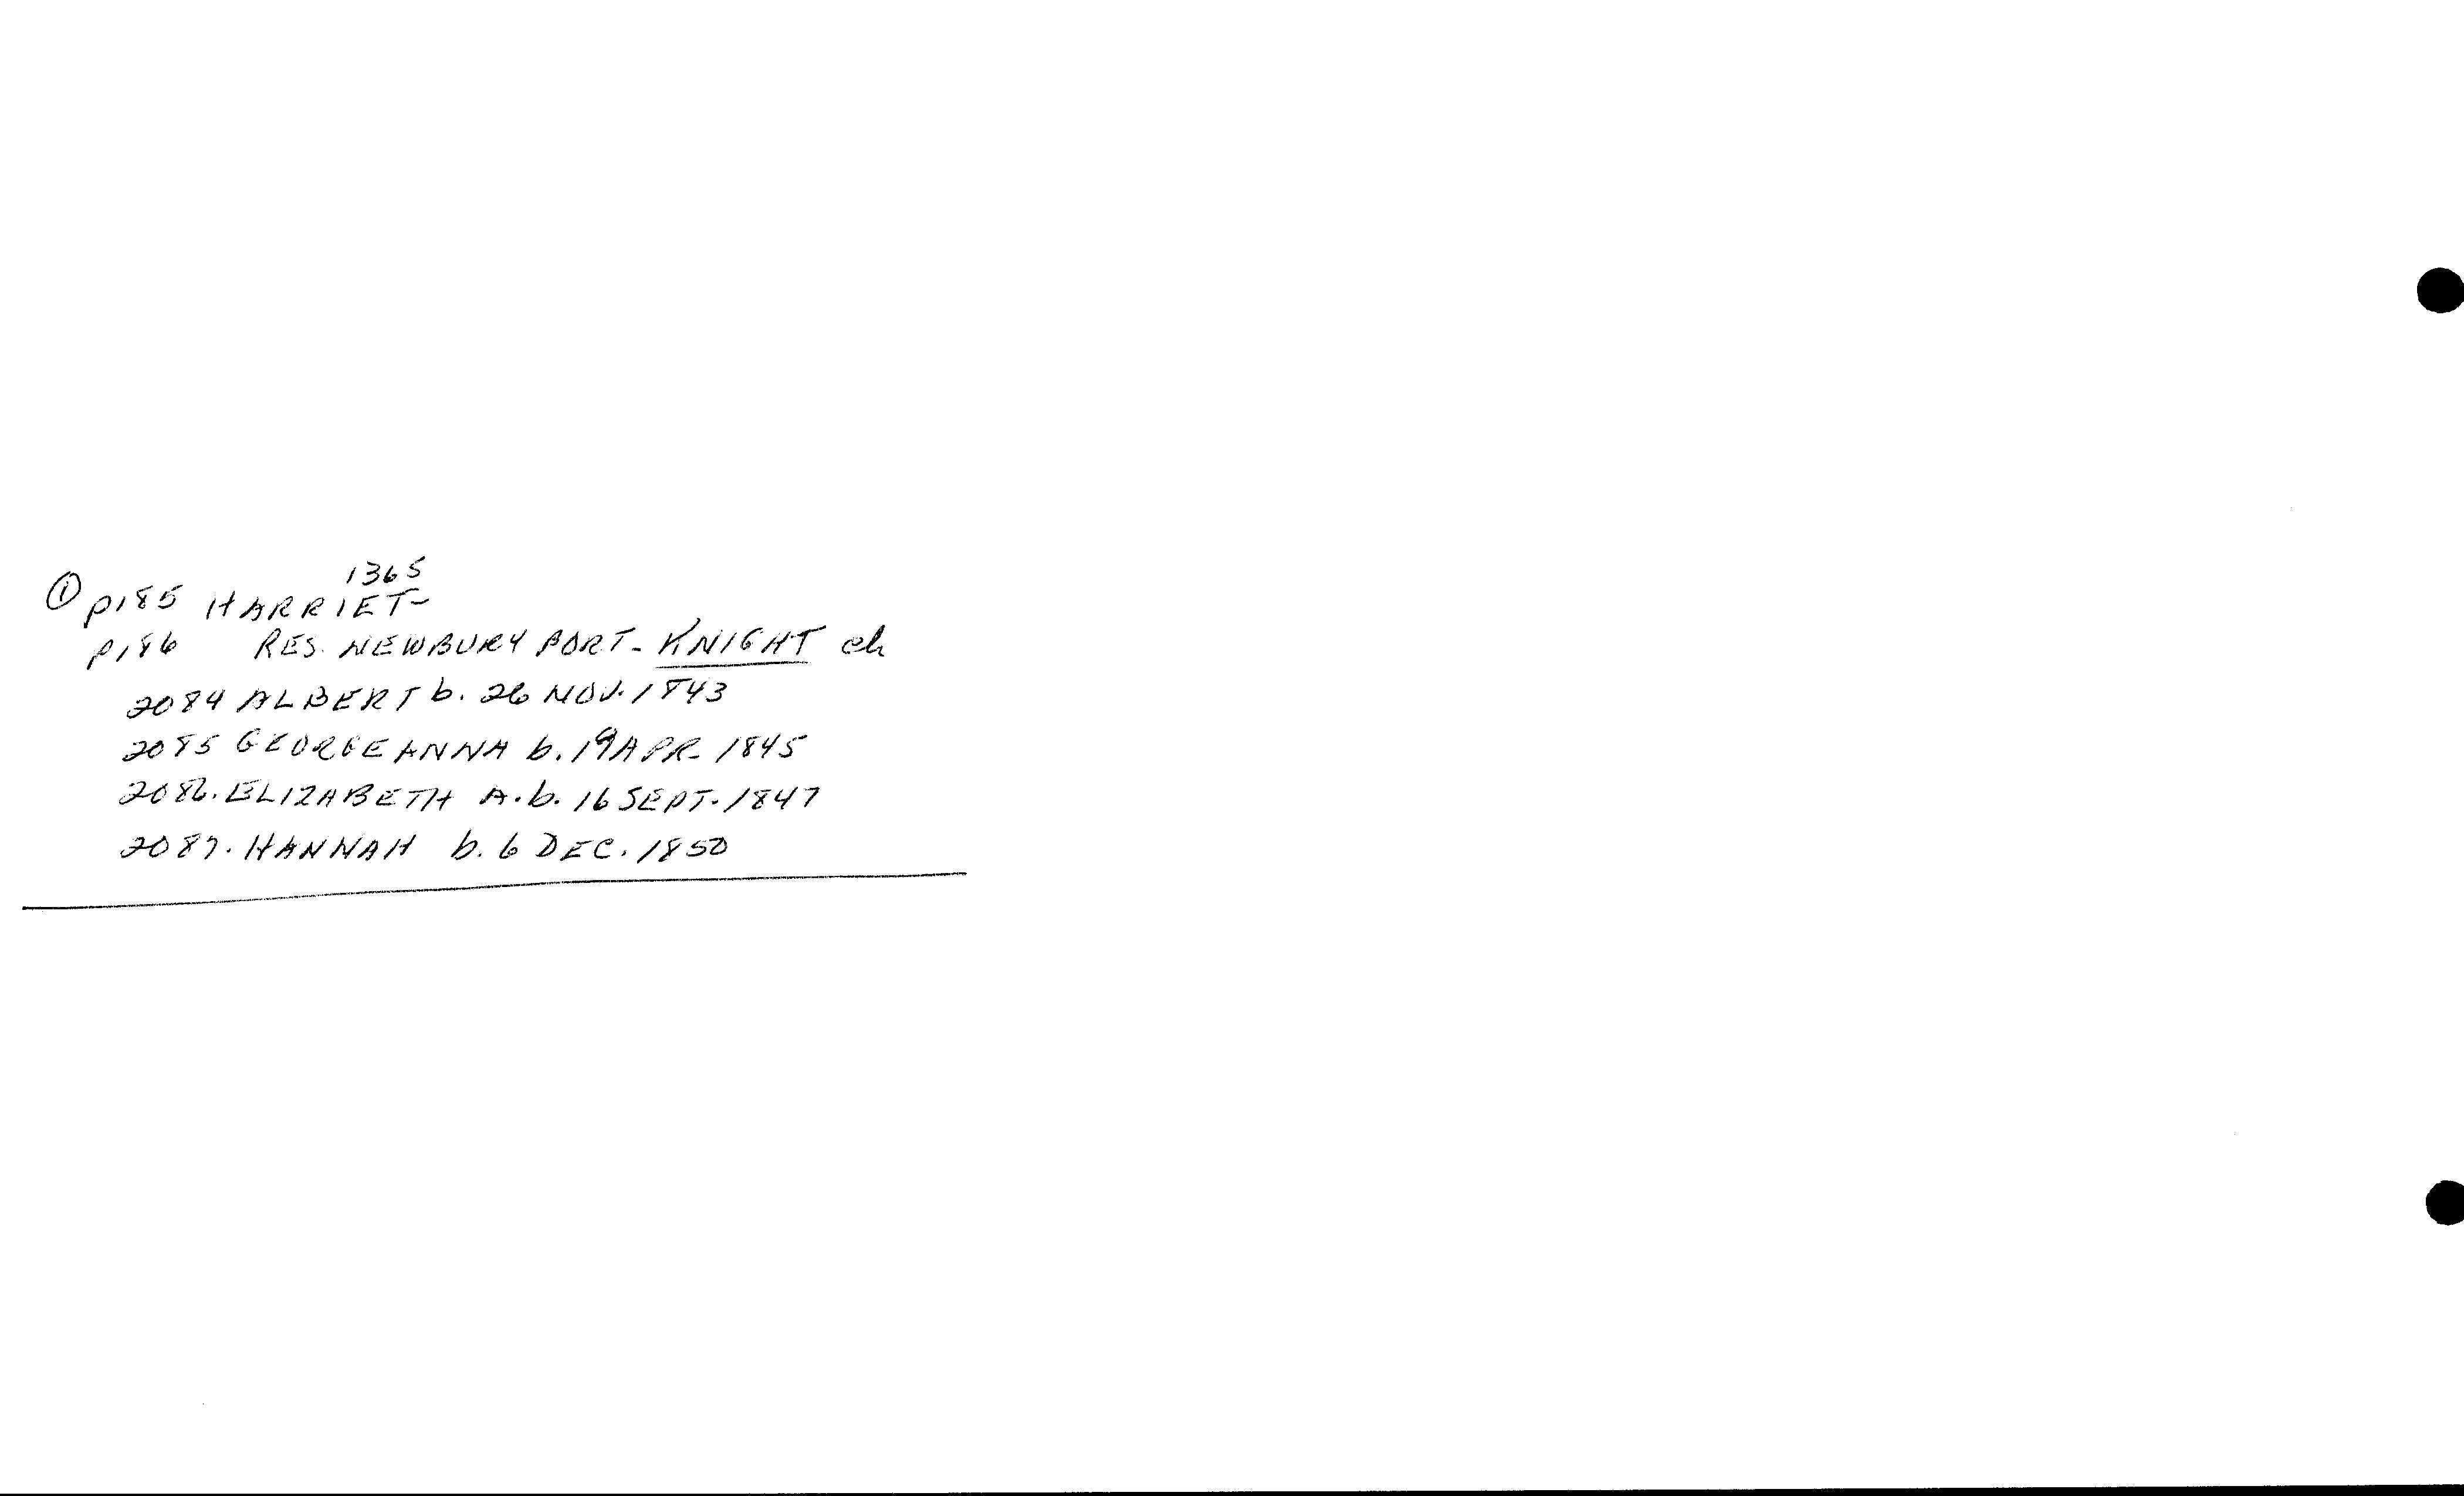 1365
① p185 HARRIET-
p186 RES. NEWBURY PORT - KNIGHT ch
2084 ALBERT b. 26 NOV. 1843
2085 GEORGEANNA b. 19 APR. 1845
2086. ELIZABETH A. b. 16 SEPT. 1847
2087. HANNAH b. 6 DEC. 1850